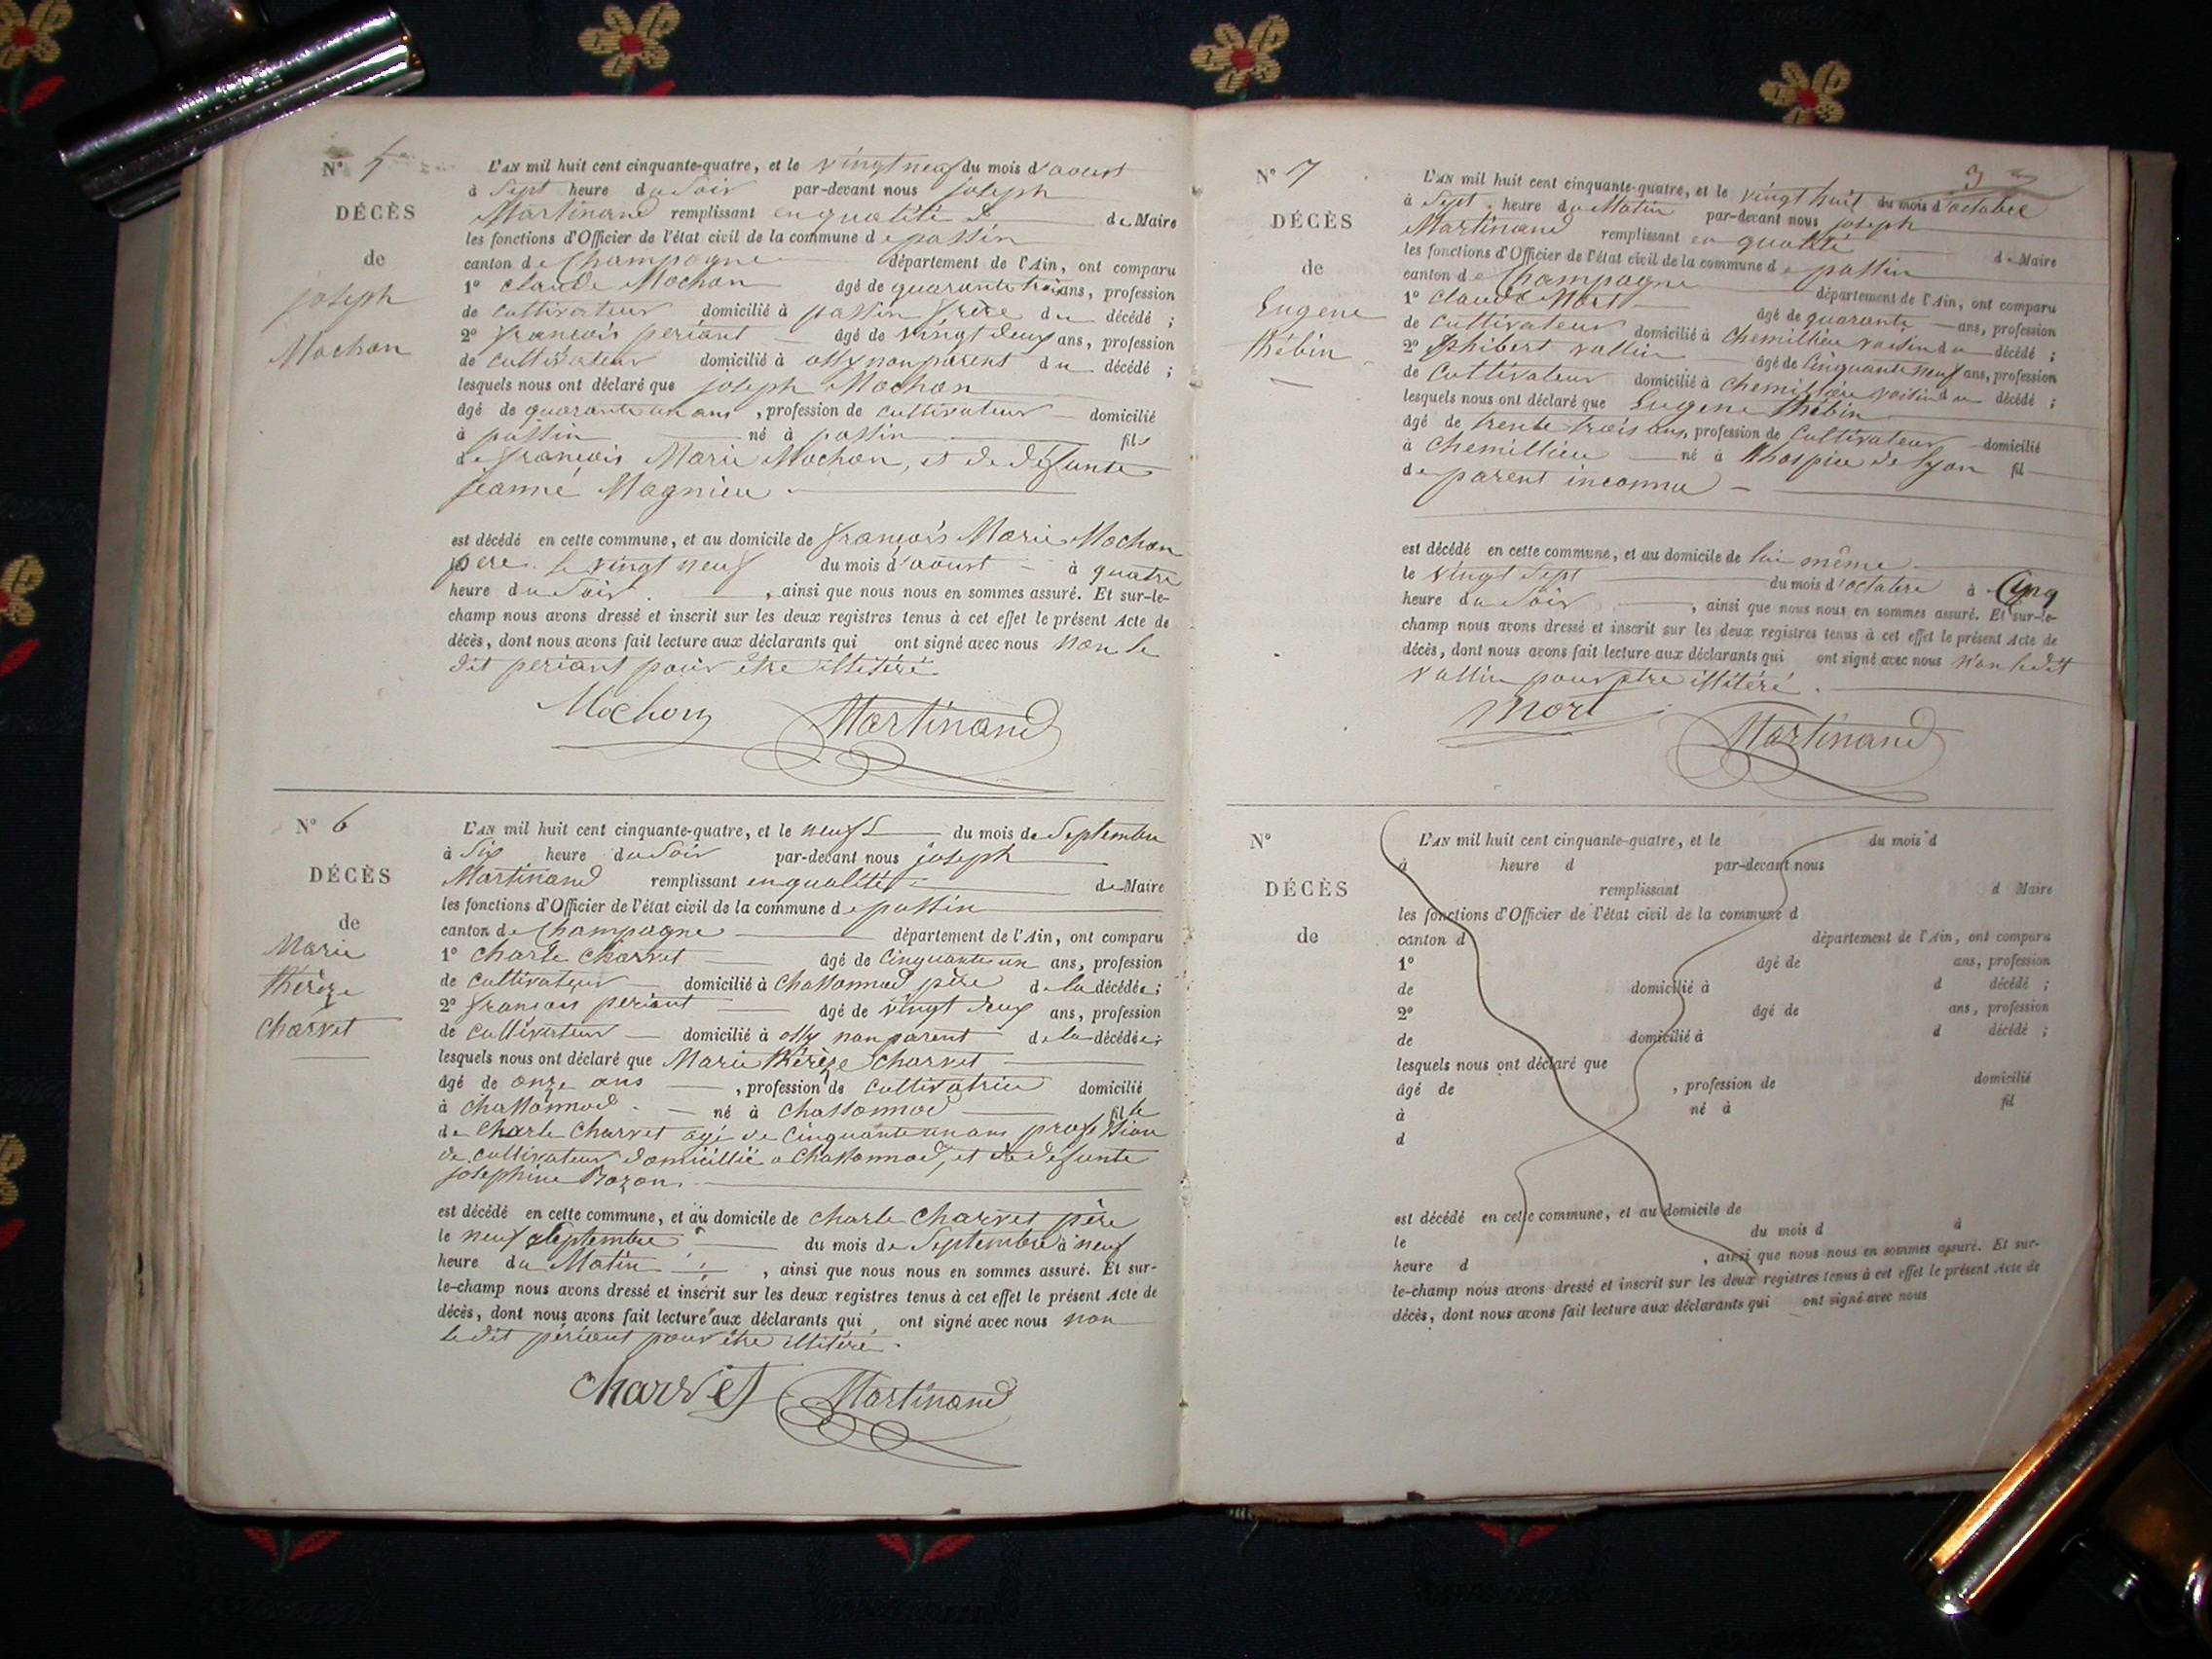 N° 5
DÉCÈS
de
joseph
Mochon
L'AN mil huit cent cinquante-quatre, et le vingt neuf du mois d'aoust
à Sept heure du Soir par-devant nous joseph
Martinand remplissant en qualité de Maire
les fonctions d'Officier de l'état civil de la commune de passin
canton de Champagne département de l'Ain, ont comparu
1° claude Mochon âgé de quarante trois ans, profession
de cultivateur domicilié à passin frère du décédé ;
2° françois periant âgé de vingt deux ans, profession
de cultivateur domicilié à ossy non parent du décédé ;
lesquels nous ont déclaré que joseph Mochon
âgé de quarante un ans , profession de cultivateur domicilié
à passin né à passin fils
de françois Marie Mochon, et de défunte
jeanne Magnieu
est décédé en cette commune, et au domicile de françois Marie Mochon
père le vingt neuf du mois d'aoust à quatre
heure du Soir , ainsi que nous nous en sommes assuré. Et sur-le-
champ nous avons dressé et inscrit sur les deux registres tenus à cet effet le présent Acte de
décès, dont nous avons fait lecture aux déclarants qui ont signé avec nous non le
dit periant pour être illitéré
Mochon Martinand
N° 6
DÉCÈS
de
Marie
thérèze
charvet
L'AN mil huit cent cinquante-quatre, et le neuf du mois de Septembre
à Six heure du Soir par-devant nous joseph
Martinand remplissant en qualité de Maire
les fonctions d'Officier de l'état civil de la commune de passin
canton de Champagne département de l'Ain, ont comparu
1° charle charvet âgé de cinquante un ans, profession
de cultivateur domicilié à chassonnod père de la décédée ;
2° françois periant âgé de vingt deux ans, profession
de cultivateur domicilié à ossy non parent de la décédée ;
lesquels nous ont déclaré que Marie thérèze charvet
âgé de onze ans , profession de cultivatrice domicilié
à chassonnod né à chassonnod fille
de charle charvet agé de cinquante un ans profession
de cultivateur domicillié a chassonnod, et de défunte
josephine Bozon.
est décédé en cette commune, et au domicile de charle charvet père
le neuf Septembre du mois de Septembre à neuf
heure du Matin , ainsi que nous nous en sommes assuré. Et sur-
le-champ nous avons dressé et inscrit sur les deux registres tenus à cet effet le présent Acte de
décès, dont nous avons fait lecture aux déclarants qui ont signé avec nous non
le dit périant pour être illitéré.
charvet Martinand
N° 7
DÉCÈS
de
Eugene
thébin
L'AN mil huit cent cinquante-quatre, et le vingt huit du mois d'octobre
à Sept heure du Matin par-devant nous joseph
Martinand remplissant en qualité de Maire
les fonctions d'Officier de l'état civil de la commune de passin
canton de Champagne département de l'Ain, ont comparu
1° claude Mort âgé de quarante ans, profession
de cultivateur domicilié à Chemillieu voisin du décédé ;
2° phibert vallin âgé de cinquante neuf ans, profession
de cultivateur domicilié à chemillieu voisin du décédé ;
lesquels nous ont déclaré que Eugene thébin
âgé de trente trois ans, profession de cultivateur domicilié
à chemillieu né à lhospice de lyon fil
de parent inconnu
est décédé en cette commune, et au domicile de lui même
le vingt Sept du mois d'octobre à Cinq
heure du Soir , ainsi que nous nous en sommes assuré. Et sur-le-
champ nous avons dressé et inscrit sur les deux registres tenus à cet effet le présent Acte de
décès, dont nous avons fait lecture aux déclarants qui ont signé avec nous non le dit
vallin pour être illitéré.
mort Martinand
N°
DÉCÈS
de
L'AN mil huit cent cinquante-quatre, et le du mois d
à heure d par-devant nous
remplissant d Maire
les fonctions d'Officier de l'état civil de la commune d
canton d département de l'Ain, ont comparu
1° âgé de ans, profession
de domicilié à d décédé ;
2° âgé de ans, profession
de domicilié à d décédé ;
lesquels nous ont déclaré que
âgé de , profession de domicilié
à né à fil
d
est décédé en cette commune, et au domicile de
le du mois d à
heure d , ainsi que nous nous en sommes assuré. Et sur-
le-champ nous avons dressé et inscrit sur les deux registres tenus à cet effet le présent Acte de
décès, dont nous avons fait lecture aux déclarants qui ont signé avec nous